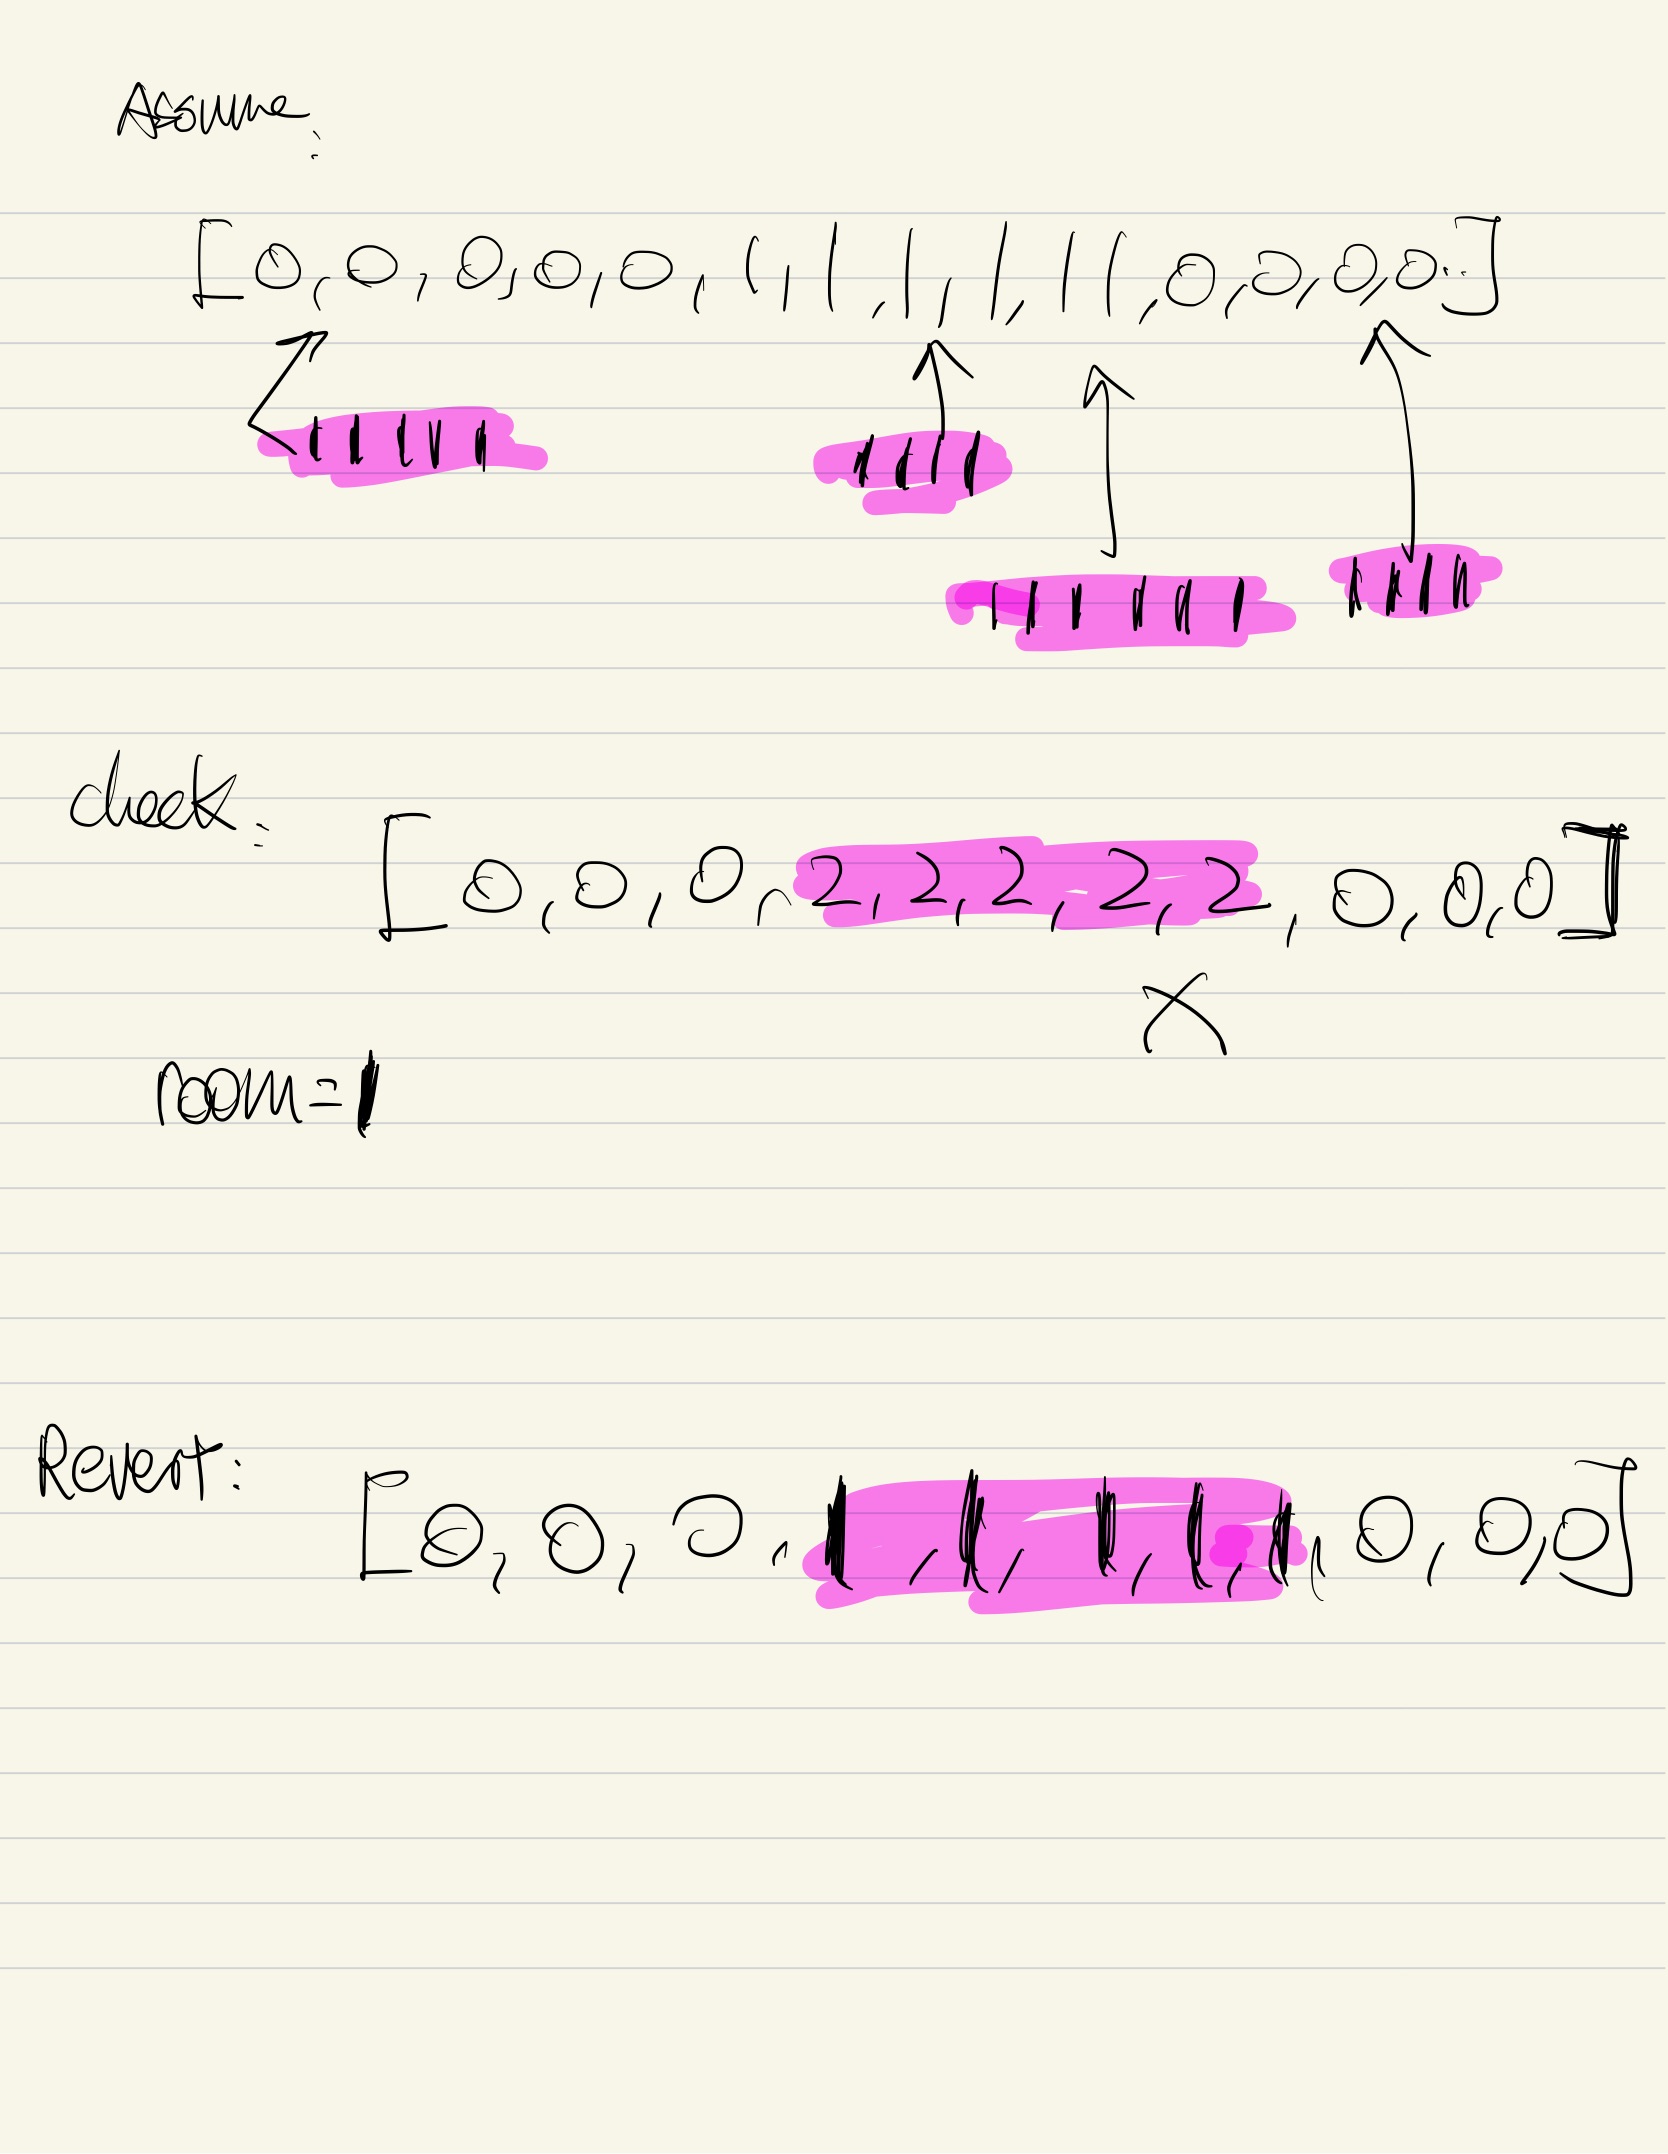 Assume:
[0, 0, 0, 0, 0, 1, 1, 1, 1, 1 1, 0, 0, 0, 0..]
1 1 1 1 1
1 1 1 1
1 1 1 1 1 1
1 1 1 1
check:
[0, 0, 0, 2, 2, 2, 2, 2, 0, 0, 0]
X
room=1
Revert:
[0, 0, 0, 1, 1, 1, 1, 1, 0, 0, 0]